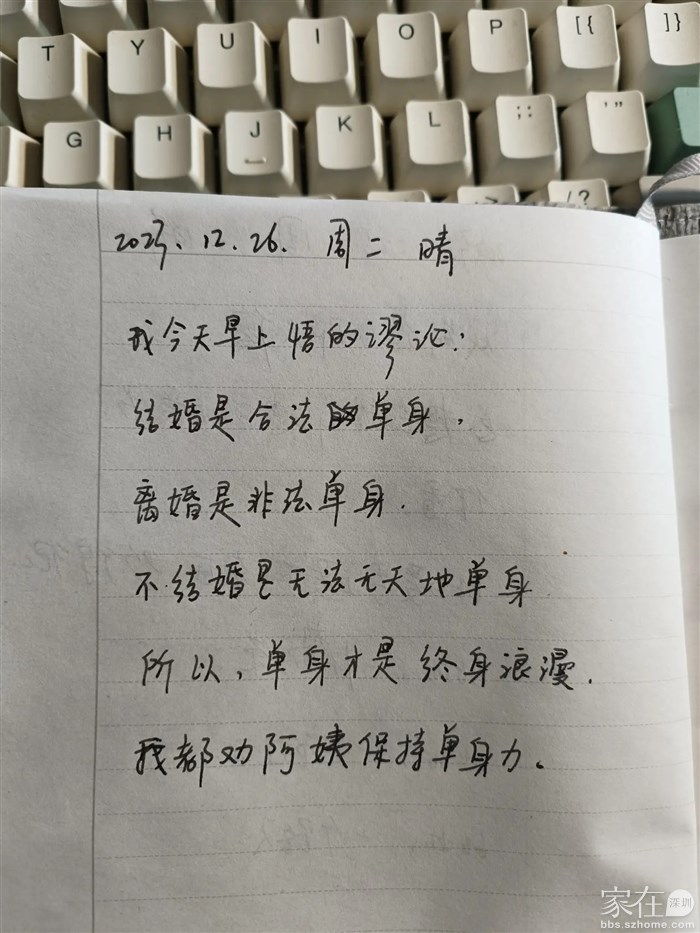 T Y U I O P [{ ]}
G H J K L ;: '"
>. /?
2023.12.26. 周二 晴
我今天早上悟的谬论:
结婚是合法单身,
离婚是非法单身.
不结婚是无法无天地单身
所以,单身才是终身浪漫.
我都劝阿姨保持单身力。
家在深圳
bbs.szhome.com